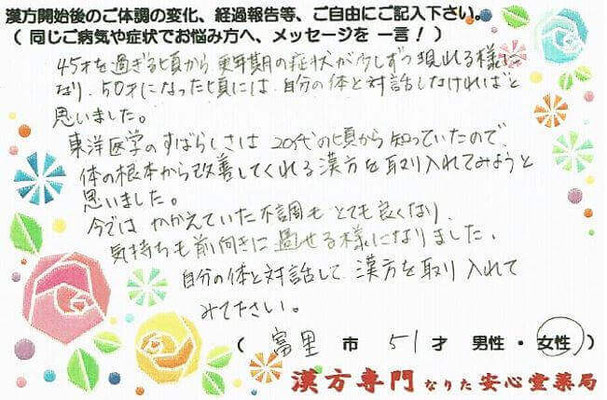 漢方開始後のご体調の変化、経過報告等、ご自由にご記入下さい。
( 同じご病気や症状でお悩み方へ、メッセージを 一言！)
45才を過ぎる頃から 更年期の症状が少しずつ現れる様に
なり、50才になった頃には、自分の体と対話しなければと
思いました。
東洋医学のすばらしさは 20代の頃から知っていたので、
体の根本から改善してくれる漢方を取り入れてみようと
思いました。
今では かかえていた不調も とても良くなり、
気持ちも前向きに過せる様になりました。
自分の体と対話して 漢方を取り入れて
みて下さい。
( 富里 市 51才 男性・女性 )
漢方専門 なりた 安心堂薬局